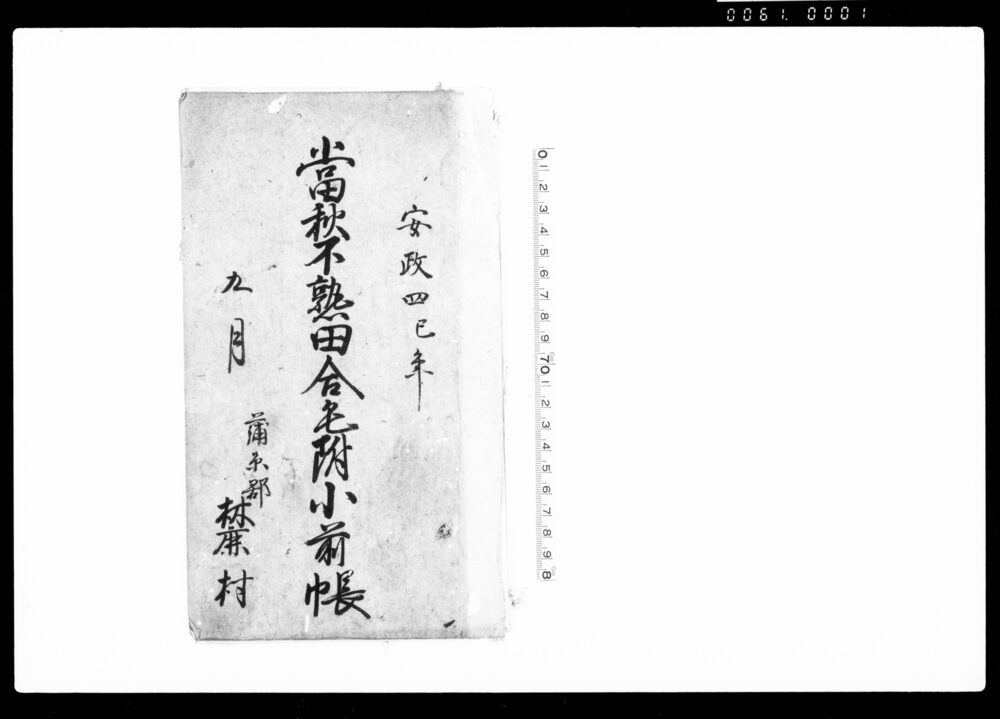 0061. 0001
安政四巳年
當秋不熟田合毛附小前帳
九月
蒲原郡
村
0 1 2 3 4 5 6 7 8 9 10 1 2 3 4 5 6 7 8 9 8